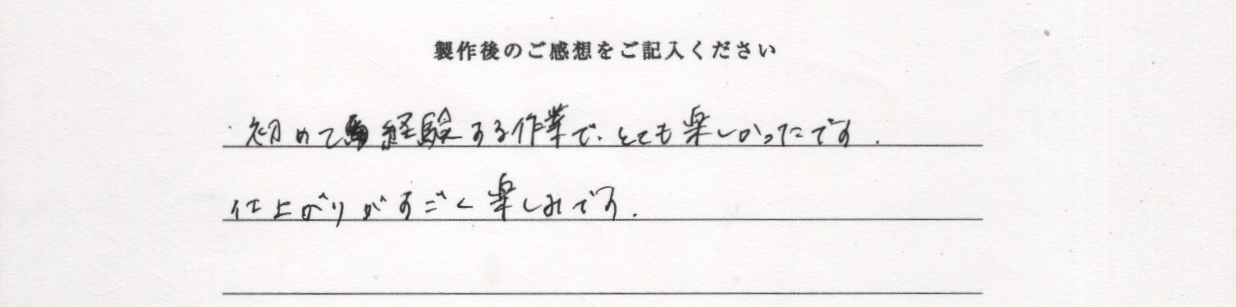 製作後のご感想をご記入ください
初めて経験する作業で、とても楽しかったです.
仕上がりがすごく楽しみです.